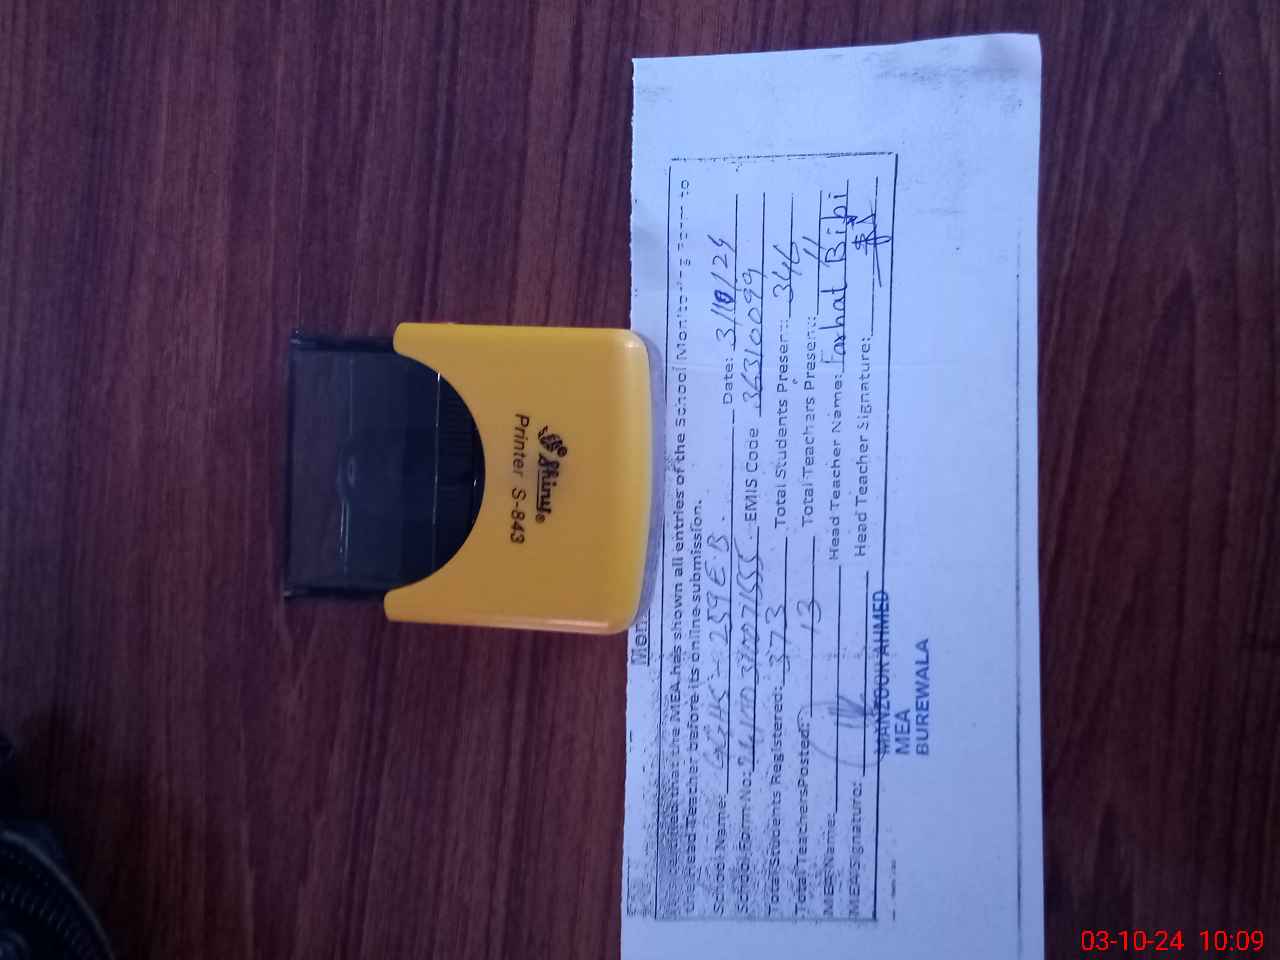 Mon
that the MEA has shown all entries of the School Monitoring Form to
the Head Teacher before its online submission.
School Name: GGHS - 259 E.B. Date: 3/10/24
School Form No: EMIS Code 36310099
Total Students Registered: 373 Total Students Present: 346
Total Teachers Posted: 13 Total Teachers Present: 11
MEA Name: Head Teacher Name: Farhat Bibi
MEA Signature: Head Teacher Signature:
MANZOOR AHMED
MEA
BUREWALA
Shiny®
Printer S-843
03-10-24 10:09